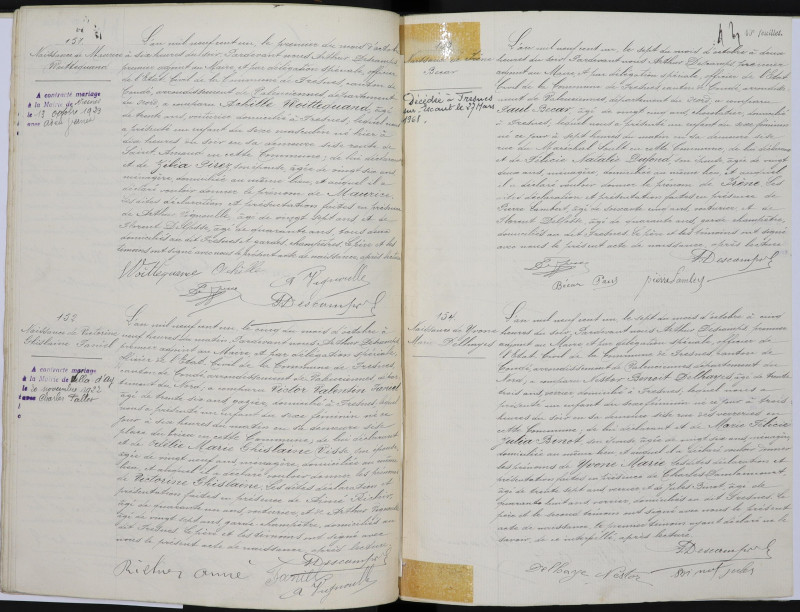 151
Naissance de Maurice
Woitteguand
A contracté mariage
à la Mairie de
le 13 octobre 1923
avec
L'an mil neuf cent un, le premier du mois d'octobre
à dix heures du soir, Pardevant nous Arthur Descamps
premier adjoint au Maire et par délégation spéciale, officier
de l'Etat Civil de la Commune de Fresnes canton de
Condé, arrondissement de Valenciennes département
du Nord, a comparu Achille Woitteguand âgé
de trente ans, domicilié à Fresnes, lequel nous
a présenté un enfant du sexe masculin né hier à
dix heures du soir en sa demeure sise route de
Saint Amand en cette Commune, de lui déclarant
et de Zélia Perez son épouse, âgée de vingt six ans,
ménagère, domiciliée au même lieu, et auquel il a
déclaré vouloir donner le prénom de Maurice
Les dites déclaration et présentation faites en présence
de Arthur Vignoelle, âgé de vingt sept ans et de
Florent Delfosse, âgé de quarante ans, tous deux
domiciliés au dit Fresnes et gardes champêtres. Le père et les
témoins ont signé avec nous le présent acte de naissance, après lecture
Woitteguand Achille
A Vignoelle
ADescamps
152
Naissance de Victorine
Ghislaine Faniel
A contracté mariage
à la Mairie de
le 10 novembre 1922
avec Charles
L'an mil neuf cent un, le cinq du mois d'octobre à
neuf heures du matin, Pardevant nous Arthur Descamps
premier adjoint au Maire et par délégation spéciale,
officier de l'Etat Civil de la Commune de Fresnes,
canton de Condé, arrondissement de Valenciennes dépar-
tement du Nord, a comparu Victor Valentin Faniel
âgé de trente six ans, domicilié à Fresnes, lequel
nous a présenté un enfant du sexe féminin né ce
jour à six heures du matin en sa demeure sise
place en cette Commune, de lui déclarant
et de Marie Ghislaine son épouse,
âgée de vingt neuf ans ménagère, domiciliée au même
lieu et auquel il a déclaré vouloir donner les prénoms
de Victorine Ghislaine. Les dites déclaration et
présentation faites en présence de Aimé Richer,
âgé de quarante un ans, et Arthur Vignoelle
âgé de vingt sept ans, garde champêtre, domiciliés au
dit Fresnes. Le père et les témoins ont signé avec
nous le présent acte de naissance, après lecture
Richer aimé
Faniel
ADescamps
A Vignoelle
feuillet.
Naissance
Bisar
Décédée à Fresnes
sur Escaut le 27 Mars
1961
L'an mil neuf cent un, le sept du mois d'octobre à deux
heures du soir, Pardevant nous Arthur Descamps premier
adjoint au Maire et par délégation spéciale, officier de l'Etat
Civil de la Commune de Fresnes canton de Condé, arrondisse-
ment de Valenciennes département du Nord, a comparu
Paul Bisar, âgé de vingt neuf ans, domicilié
à Fresnes, lequel nous a présenté un enfant du sexe féminin
né ce jour à sept heures du matin en sa demeure sise
rue du Maréchal Soult en cette Commune, de lui déclarant
et de Félicie Natalie Dufond, son épouse âgée de vingt
deux ans, ménagère, domiciliée au même lieu, et auquel
il a déclaré vouloir donner le prénom de Irène, Les
dites déclaration et présentation faites en présence de
Pierre Lambert, âgé de soixante un ans, et de
Florent Delfosse, âgé de quarante ans, garde champêtre,
domiciliés au dit Fresnes. Le père et les témoins ont signé
avec nous le présent acte de naissance, après lecture
ADescamps
Bisar Paul
pierre Lambert
154
Naissance de Yvonne
Marie Delhaye
L'an mil neuf cent un, le sept du mois d'octobre à cinq
heures du soir, Pardevant nous Arthur Descamps premier
adjoint au Maire et par délégation spéciale, officier de
l'Etat Civil de la Commune de Fresnes canton de
Condé, arrondissement de Valenciennes département du
Nord, a comparu Nestor Benoit Delhaye âgé de trente
trois ans, verrier domicilié à Fresnes, lequel nous a
présenté un enfant du sexe féminin né ce jour à trois
heures du soir en sa demeure sise rue des verreries en
cette Commune, de lui déclarant et de Marie Félicie
Julia Benot, son épouse âgée de vingt six ans, ménagère,
domiciliée au même lieu, et auquel il a déclaré vouloir donner
les prénoms de Yvonne Marie. Les dites déclaration et
présentation faites en présence de Charles
âgé de trente sept ans et de Jules Binot, âgé de
cinquante huit ans verrier, domiciliés au dit Fresnes. Le
père et le second témoin ont signé avec nous le présent
acte de naissance, le premier témoin ayant déclaré ne le
savoir de ce interpellé, après lecture.
ADescamps
Delhaye Nestor
jules